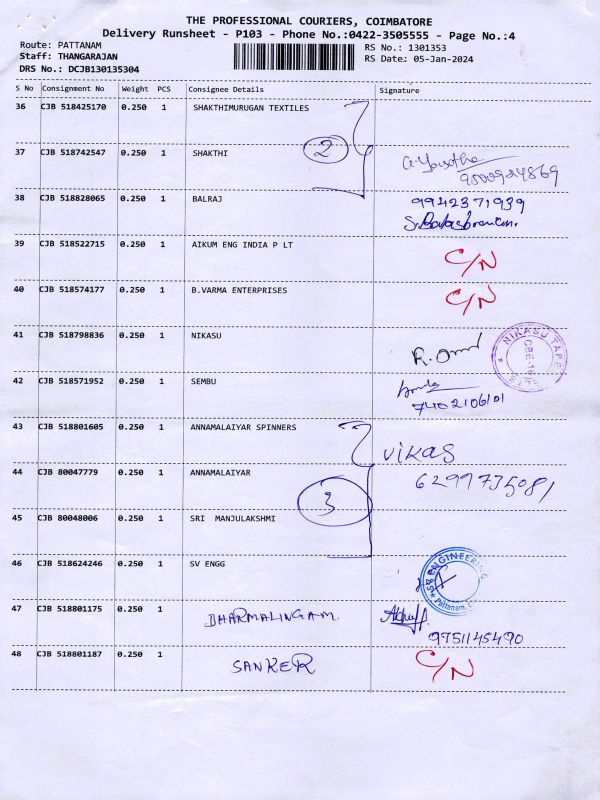 THE PROFESSIONAL COURIERS, COIMBATORE
Delivery Runsheet - P103 - Phone No.:0422-3505555 - Page No.:4
Route: PATTANAM
RS No.: 1301353
Staff: THANGARAJAN
RS Date: 05-Jan-2024
DRS No.: DCJB130135304
S No Consignment No Weight PCS Consignee Details Signature
36 CJB 518425170 0.250 1 SHAKTHIMURUGAN TEXTILES
2
37 CJB 518742547 0.250 1 SHAKTHI
38 CJB 518828065 0.250 1 BALRAJ 9942371939
39 CJB 518522715 0.250 1 AIKUM ENG INDIA P LT C/N
40 CJB 518574177 0.250 1 B.VARMA ENTERPRISES C/N
41 CJB 518798836 0.250 1 NIKASU
NIKASU TAPE
42 CJB 518571952 0.250 1 SEMBU
7402106101
43 CJB 518801605 0.250 1 ANNAMALAIYAR SPINNERS
VIKAS
44 CJB 80047779 0.250 1 ANNAMALAIYAR 6299735081
3
45 CJB 80048006 0.250 1 SRI MANJULAKSHMI
46 CJB 518624246 0.250 1 SV ENGG
ENGINEERING
Pattanam
47 CJB 518801175 0.250 1 DHARMALINGAM
9751145490
48 CJB 518801187 0.250 1 SANKER C/N